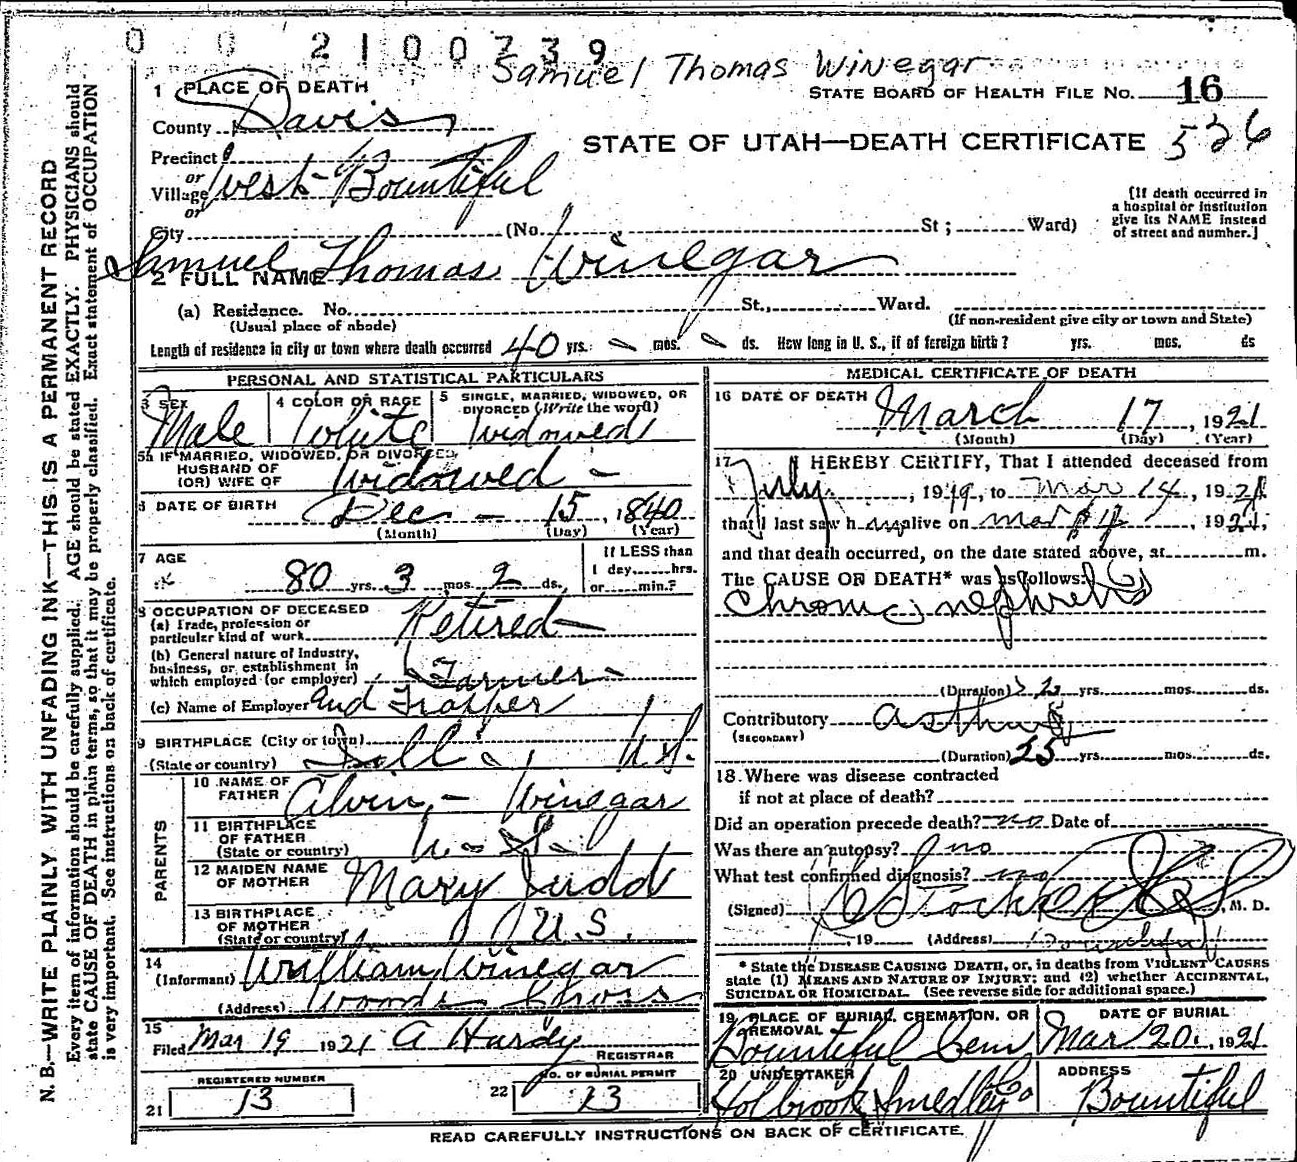 0 0 2100739
Samuel Thomas Winegar
STATE BOARD OF HEALTH FILE No. 16
526
STATE OF UTAH—DEATH CERTIFICATE
1 PLACE OF DEATH
County Davis
Precinct
or
Village West Bountiful
or
City (No. St; Ward)
[If death occurred in
a hospital or institution
give its NAME instead
of street and number.]
2 FULL NAME Samuel Thomas Winegar
(a) Residence. No. St., Ward.
(Usual place of abode) (If non-resident give city or town and State)
Length of residence in city or town where death occurred 40 yrs. - mos. - ds. How long in U. S., if of foreign birth? yrs. mos. ds
PERSONAL AND STATISTICAL PARTICULARS
3 SEX Male
4 COLOR OR RACE White
5 SINGLE, MARRIED, WIDOWED, OR
DIVORCED (Write the word)
Widowed
5a IF MARRIED, WIDOWED, OR DIVORCED
HUSBAND OF
(OR) WIFE OF Widowed -
6 DATE OF BIRTH Dec - 15, 1840
(Month) (Day) (Year)
7 AGE
80 yrs. 3 mos. 2 ds.
If LESS than
1 day......hrs.
or......min.?
8 OCCUPATION OF DECEASED
(a) Trade, profession or
particular kind of work Retired
(b) General nature of Industry,
business, or establishment in
which employed (or employer) Farmer
(c) Name of Employer and Trapper
9 BIRTHPLACE (City or town)
(State or country) U.S.
PARENTS
10 NAME OF
FATHER Alvin - Winegar
11 BIRTHPLACE
OF FATHER
(State or country) U.S.
12 MAIDEN NAME
OF MOTHER Mary Judd
13 BIRTHPLACE
OF MOTHER
(State or country) U.S.
14
(Informant) William Winegar
(Address) Woods Cross
15
Filed Mar 19 1921 A Hardy
REGISTRAR
REGISTERED NUMBER
21 13
NO. OF BURIAL PERMIT
22 13
MEDICAL CERTIFICATE OF DEATH
16 DATE OF DEATH March 17, 1921
(Month) (Day) (Year)
17 I HEREBY CERTIFY, That I attended deceased from
July, 1919, to Mar 14, 1921
that I last saw him alive on Mar 14, 1921,
and that death occurred, on the date stated above, at m.
The CAUSE OF DEATH* was as follows:
Chronic nephritis
(Duration) 2 yrs. mos. ds.
Contributory asthma
(SECONDARY)
(Duration) 25 yrs. mos. ds.
18 Where was disease contracted
if not at place of death?
Did an operation precede death? no Date of
Was there an autopsy? no
What test confirmed diagnosis? no
(Signed) M. D.
, 19 (Address) Bountiful
* State the DISEASE CAUSING DEATH, or, in deaths from VIOLENT CAUSES
state (1) MEANS AND NATURE OF INJURY; and (2) whether ACCIDENTAL,
SUICIDAL OR HOMICIDAL. (See reverse side for additional space.)
19 PLACE OF BURIAL, CREMATION, OR
REMOVAL
Bountiful Cem
DATE OF BURIAL
Mar 20, 1921
20 UNDERTAKER
Holbrook Smedley Co
ADDRESS
Bountiful
READ CAREFULLY INSTRUCTIONS ON BACK OF CERTIFICATE.
N. B.—WRITE PLAINLY WITH UNFADING INK—THIS IS A PERMANENT RECORD
Every item of information should be carefully supplied. AGE should be stated EXACTLY. PHYSICIANS should
state CAUSE OF DEATH in plain terms, so that it may be properly classified. Exact statement of OCCUPATION
is very important. See instructions on back of certificate.